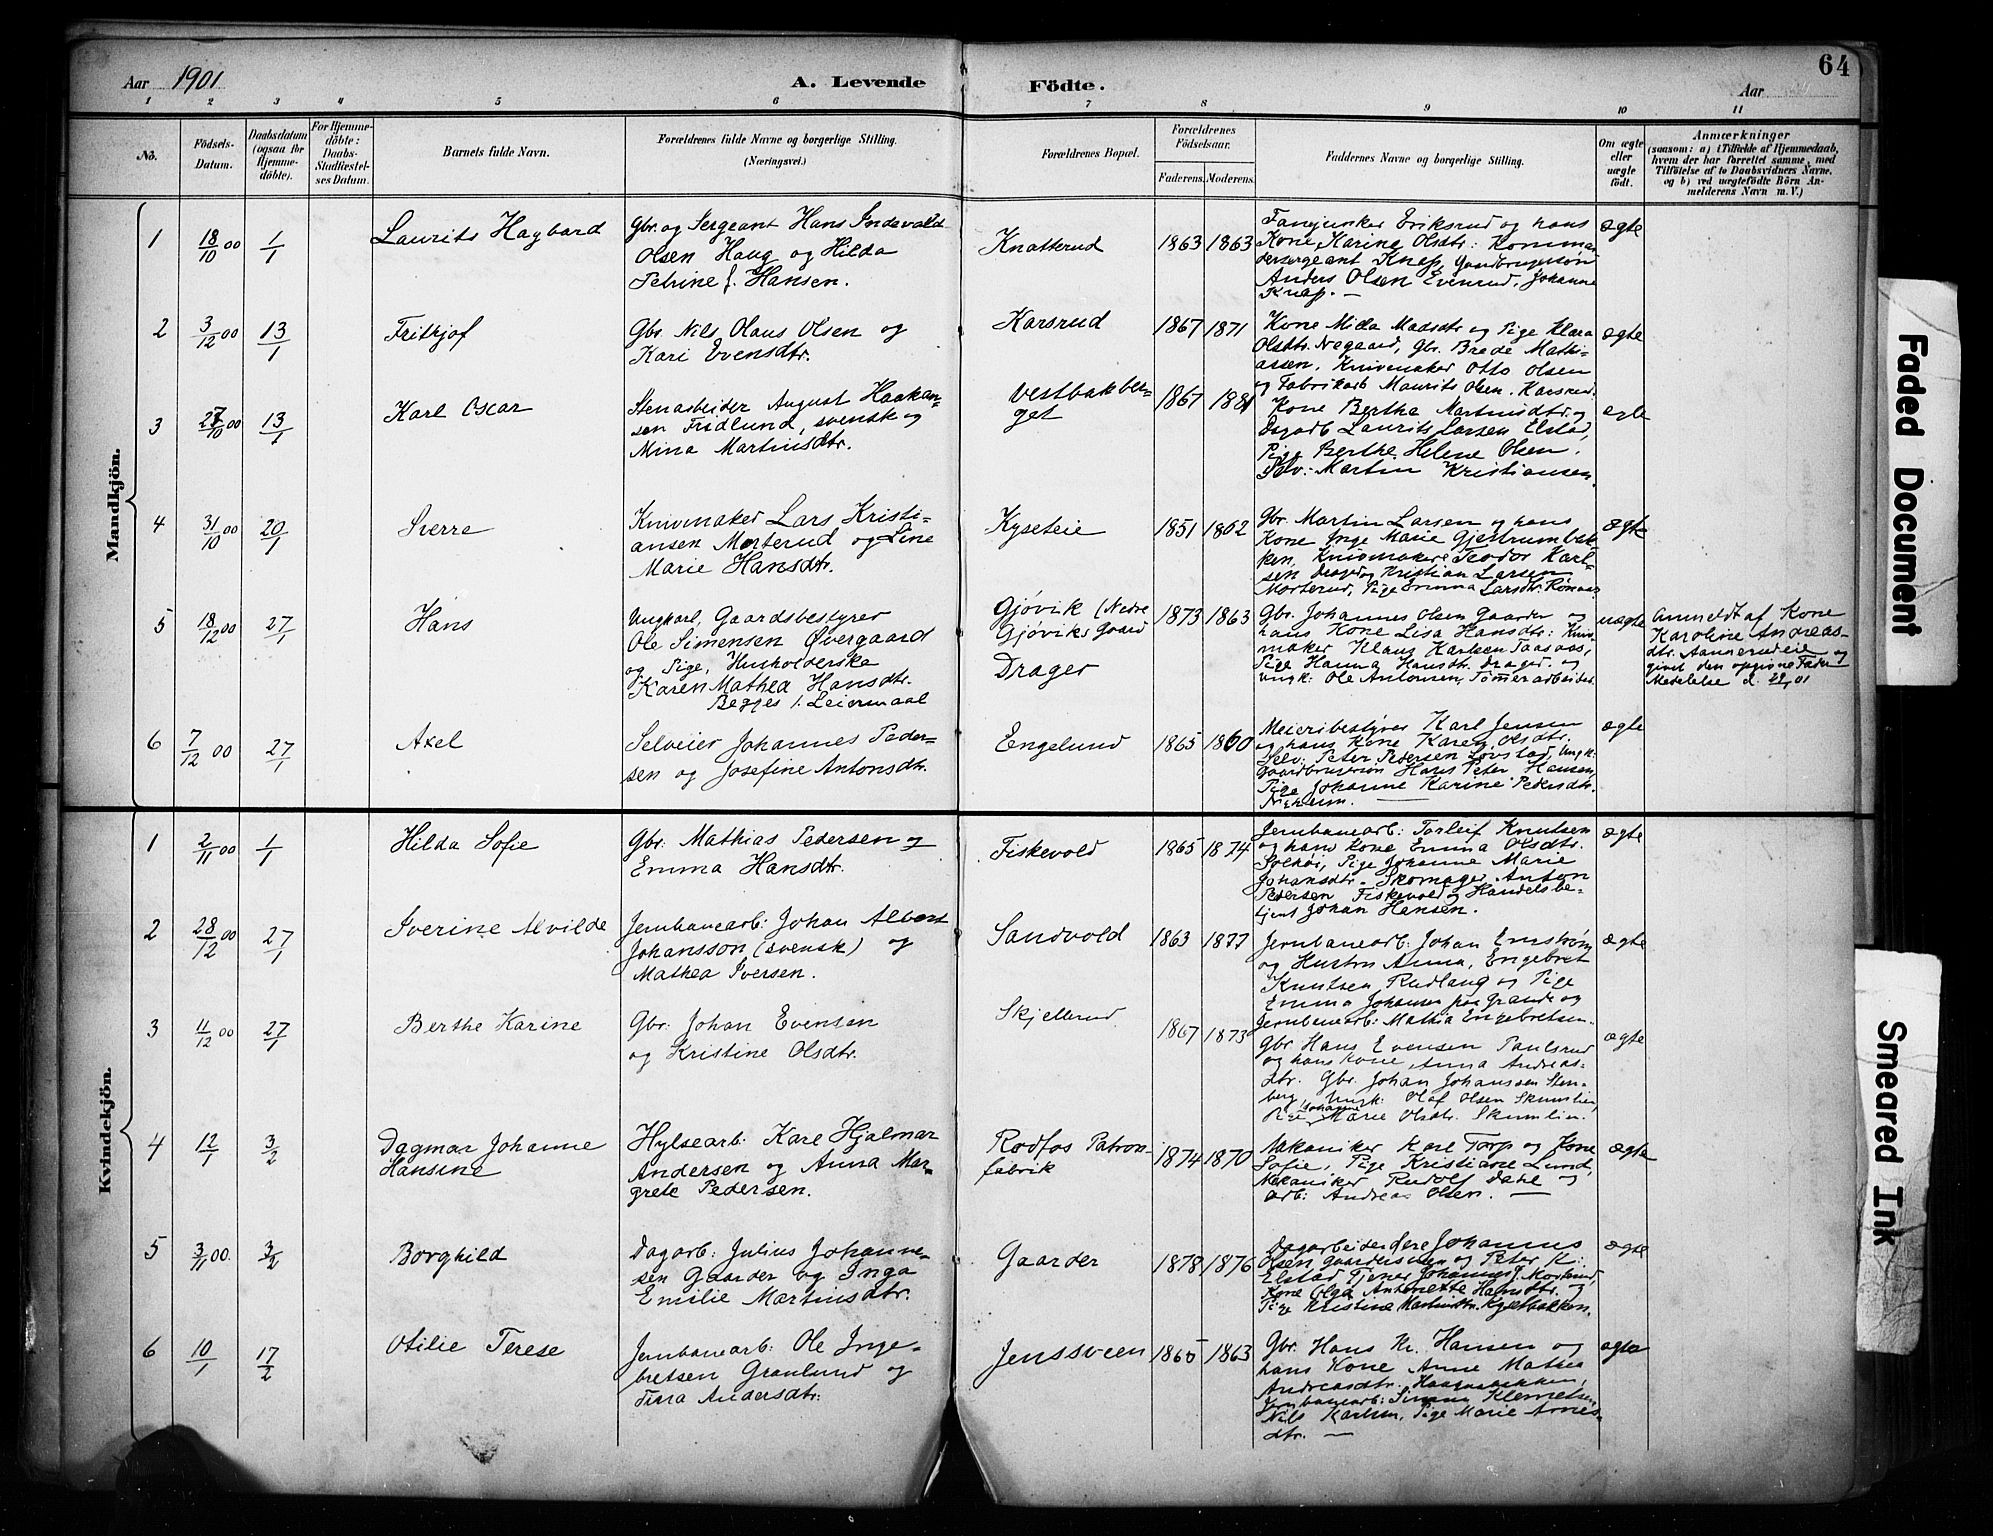 64
Aar 1901
A. Levende Födte.
Aar
1 2 3 4 5 6 7 8 9 10 11
No.
Födsels-Datum.
Daabsdatum (ogsaa for Hjemme-döbte).
For Hjemme-döbte: Daabs-Stadfæstel-ses Datum.
Barnets fulde Navn.
Forældrenes fulde Navne og borgerlige Stilling.
(Næringsvei.)
Forældrenes Bopæl.
Forældrenes Födselsaar.
Faderens. Moderens.
Faddernes Navne og borgerlige Stilling.
Om ægte eller uægte födt.
Anmærkninger
(saasom: a) i Tilfælde af Hjemmedaab,
hvem der har forrettet samme, med
Tilföielse af to Daabsvidners Navne,
og b) ved uægtefödte Börn An-
melderens Navn m. V.)
Mandkjön.
1 18/10 00 1/1 Laurits Hagbard
Gbr. og Sergeant Hans Indevald
Olsen Haug og Hilda
Petrine f. Hansen.
Knatterud 1863 1863
Fanejunker Eriksrud og hans
Kone Karine Olsdtr: Komman
dersergeant Knap, Gaardbrugersøn
Anders Olsen Evenrud, Johanne
Knap. —
ægte
2 3/12 00 13/1 Fritjof
Gbr. Nils Olaus Olsen og
Kari Evensdtr.
Karsrud 1867 1871
Kone Milla Madsdtr og Pige Klara
Olsdtr. Negaard, Gbr. Brede Mathi-
assen, Knivmaker Otto Olsen
og Fabrikarb Maurits Olsen, Karsrud.
ægte
3 27/10 00 13/1 Karl Oscar
Stenarbeider August Haakan-
sen Fridlund, svensk og
Mina Martinsdtr.
Vestbakber-
get 1867 1881
Kone Berthe Martinsdtr. og
Dagarb Laurits Larsen Elstad,
Pige Berthe Helene Olsen.
Selv: Martin Kristiansen.
ægte
4 31/10 00 20/1 Sverre
Knivmaker Lars Kristi-
ansen Morterud og Line
Marie Hansdtr.
Kyseteie 1851 1862
Gbr. Martin Larsen og hans
Kone Inge Marie Gjestrumbak-
ken, Knivmakere Teodor Karl-
sen Drager og Kristian Larsen
Morterud, Pige Emma Larsdtr.
ægte
5 18/12 00 27/1 Hans
Ungkarl, Gaardsbestyrer
Ole Simensen Øvergaard
og Pige, Husholderske
Karen Mathea Hansdtr.
Begges 1. Leiermaal
Gjøvik (Nedre
Gjøviks Gaard
Drager
1873 1863
Gbr. Johannes Olsen Gaarder og
hans Kone Lisa Hansdtr: Kniv-
maker Klaus Karlsen Taasaas,
Pige Hanna Hansdtr. Drager. og
Ungk: Ole Antonsen, Tømmerarbeider.
uægte
Anmeldt af Kone
Karoline Andreas-
dtr. Aannerudeie og
givet den opgivne Fader
Meddelelse d. 01
6 7/12 00 27/1 Axel
Selveier Johannes Peder-
sen og Josefine Antonsdtr.
Engelund 1865 1860
Meieribestyrer Karl Jensen
og hans Kone Karen Olsdtr.
Selv: Peter Pedersen Lovstad, Ungk:
Gaardbrugersøn Hans Peter Hansen,
Pige Johanne Karine Pedersdtr.
ægte
Kvindekjön.
1 2/11 00 1/1 Hilda Sofie
Gbr: Mathias Pedersen og
Emma Hansdtr.
Fiskevold 1865 1874
Jernbanearb: Torleif Knutsen
og hans Kone Emma Olsdtr.
Solhøi, Pige Johanne Marie
Johansdtr. Skomager Anton
Pedersen Fiskevold og Handelsbe-
tjent Johan Hansen.
ægte
2 28/12 00 27/1 Iverine Alvilde
Jernbanearb: Johan Albert
Johansson (svensk) og
Mathea Iversen.
Sandvold 1863 1877
Jernbanearb: Johan Enstrøm
og Hustru Anna, Engebret
Knutsen Rudlang og Pige
Emma Johansen paa Grande og
Jernbanearb: Mathia Engebretsen.
ægte
3 11/12 00 27/1 Berthe Karine
Gbr: Johan Evensen
og Kristine Olsdtr.
Skjellerud. 1867 1873
Gbr. Hans Evensen Paulsrud
og hans Kone Anna Andreas-
dtr. Gbr. Johan Johanssen Sten-
berg, Ungk: Olaf Olsen Skumlien,
Pige Johanne Marie Olsdtr. Skumlien.
ægte
4 12/1 3/2 Dagmar Johanne
Hansine
Hylsearb: Karl Hjalmar
Andersen og Anna Mar-
grete Pedersen.
Rodfos Patron-
fabrik 1874 1870
Mekaniker Karl Torp og Kone
Sofie, Pige Kristiane Lund,
Mekaniker Rudolf Dahl og
Arb: Andreas Olsen. —
ægte
5 3/11 00. 3/2 Borghild
Dagarb: Julius Johanne-
sen Gaarder og Inga
Emilie Martinsdtr.
Gaarder 1878 1876
Dagarbeiderere Johannes
Olsen Gaardersveen og Peter K:
Elstad Tjener Johannes J. Morterud,
Kone Olga Antonette Hansdtr. og
Pige Kristine Martinsdtr. Kyselbakken.
ægte
6 10/1 17/2 Otilie Terese
Jernbanearb: Ole Inge-
bretsen Granlund og
Tina Andersdtr:
Jenssveen 1865 1863
Gbr. Hans Kr. Hansen og
hans Kone Anne Mathea
Andreasdtr. Haagaabakken,
Jernbanearb: Simen Klemetsen,
Nils Karlsen, Pige Marie Arnes-
dtr. —
ægte
Faded Document
Smeared Ink